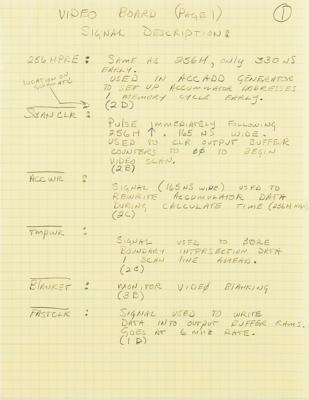 VIDEO BOARD (PAGE 1)
1
SIGNAL DESCRIPTIONS
256HPRE : SAME AS 256H, ONLY 330 NS
EARLY.
USED IN ACC ADD GENERATOR
TO SET UP ACCUMULATOR ADDRESSES
1 MEMORY CYCLE EARLY.
LOCATION ON
SCHEMATIC
(2D)
SCANCLR : PULSE IMMEDIATELY FOLLOWING
256H ↑. 165 NS WIDE.
USED TO CLR OUTPUT BUFFER
COUNTERS TO 0 TO BEGIN
VIDEO SCAN.
(2B)
ACCWR :
SIGNAL (165 NS WIDE) USED TO
REWRITE ACCUMULATOR DATA
DURING CALCULATE TIME (256H HIGH)
(2C)
TMPWR :
SIGNAL USED TO STORE
BOUNDARY INTERSECTION DATA
1 SCAN LINE AHEAD.
(2C)
BLANKET : MONITOR VIDEO BLANKING
(3B)
FASTCLR : SIGNAL USED TO WRITE
DATA INTO OUTPUT BUFFER RAMS.
GOES AT 6 MHZ RATE.
(1D)